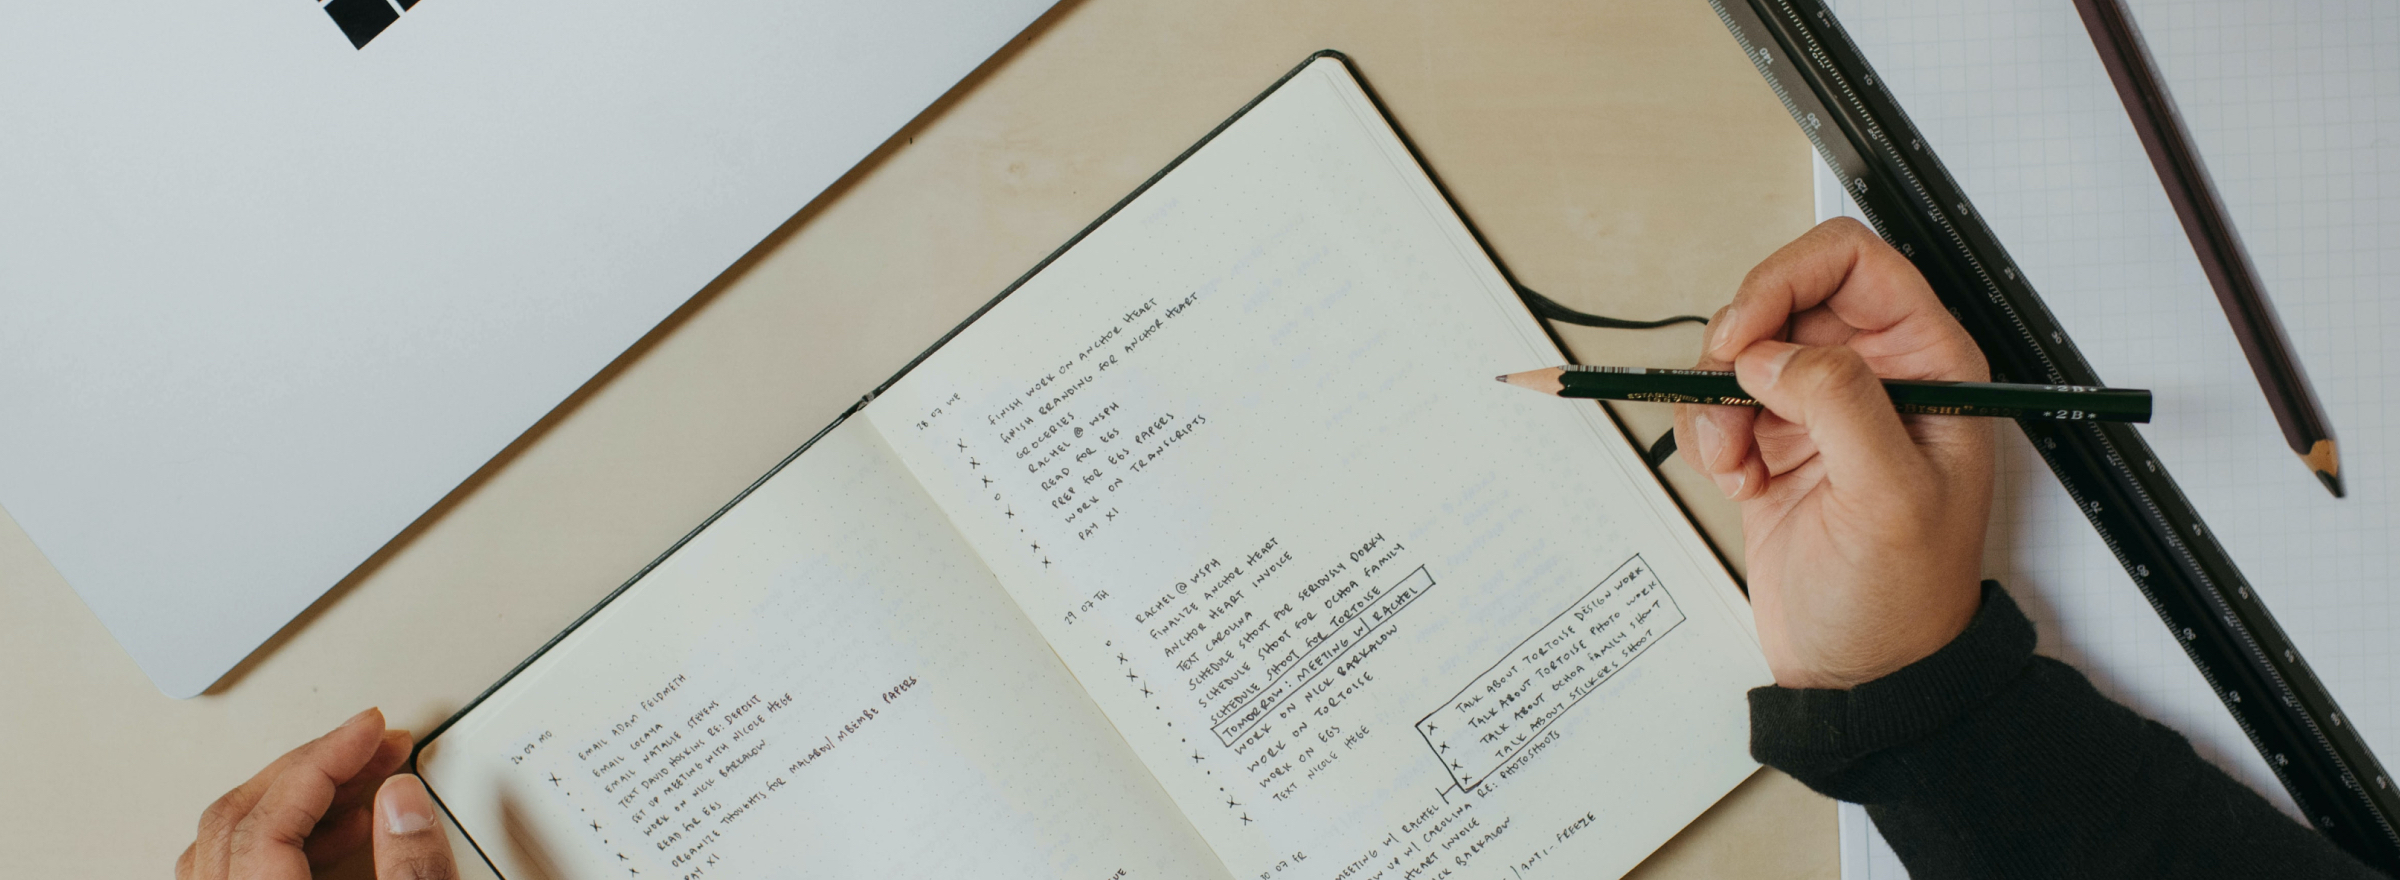 26 07 MO
X EMAIL ADAM FELDMETH
EMAIL LOCAYA
EMAIL NATALIE STEVENS
TEXT DAVID HOCKINS RE: DEPOSIT
SET UP MEETING WITH NICOLE HEGE
WORK ON NICK BARKALOW
READ FOR EGS
ORGANIZE THOUGHTS FOR MALABOU/ MBEMBE PAPERS
PAY XI
28 07 WE
X FINISH WORK ON ANCHOR HEART
X FINISH BRANDING FOR ANCHOR HEART
X GROCERIES
o RACHEL @ WSPH
X READ FOR EGS
• PREP FOR EGS PAPERS
X WORK ON TRANSCRIPTS
X PAY XI
29 07 TH
o RACHEL @ WSPH
X FINALIZE ANCHOR HEART
X ANCHOR HEART INVOICE
X TEXT CAROLINA
• SCHEDULE SHOOT FOR SERIOUSLY DORKY
• SCHEDULE SHOOT FOR OCHOA FAMILY
• SCHEDULE SHOOT FOR TORTOISE
TOMORROW: MEETING W/ RACHEL
X WORK ON NICK BARKALOW
• WORK ON TORTOISE
X WORK ON EGS
X TEXT NICOLE HEGE
X TALK ABOUT TORTOISE DESIGN WORK
X TALK ABOUT TORTOISE PHOTO WORK
X TALK ABOUT OCHOA FAMILY SHOOT
X TALK ABOUT STICKERS SHOOT
07 FR
MEETING W/ RACHEL
UP W/ CAROLINA RE: PHOTOSHOOTS
HEART INVOICE
BARKALOW
/ ANTI-FREEZE
*2B*